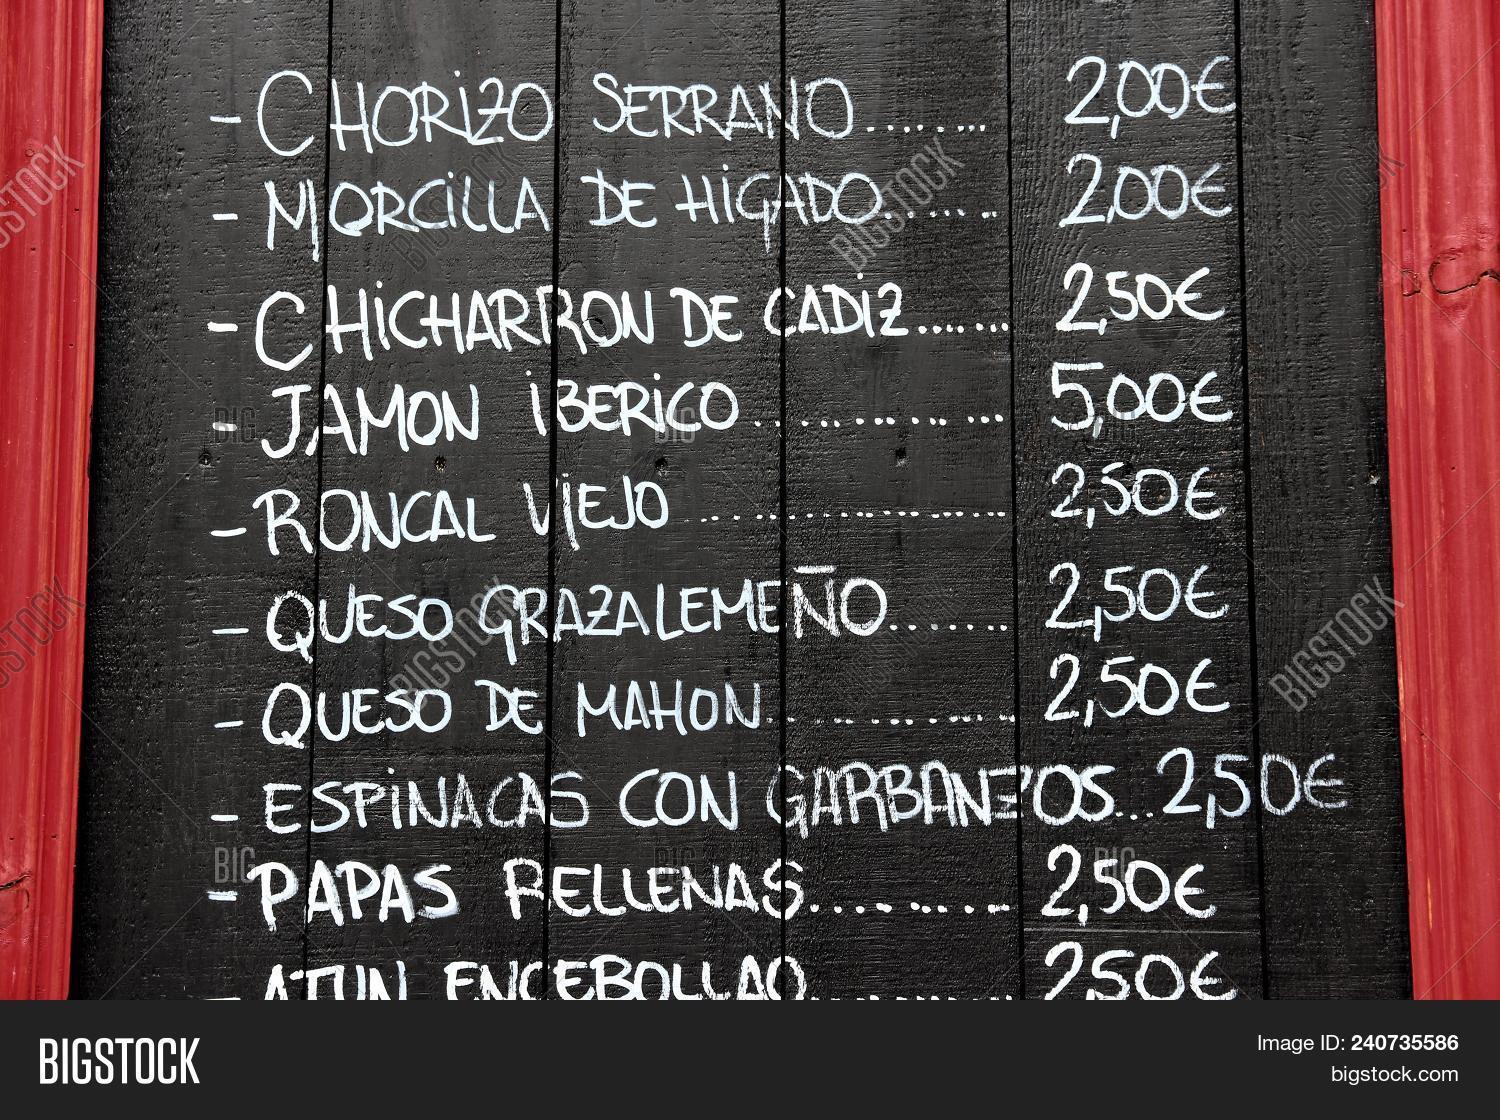 - CHORIZO SERRANO........ 2,00€
- MORCILLA DE HIGADO...... 2,00€
- CHICHARRON DE CADIZ....... 2,50€
- JAMON IBERICO.............. 5,00€
- RONCAL VIEJO.................. 2,50€
- QUESO GRAZALEMEÑO....... 2,50€
- QUESO DE MAHON............ 2,50€
- ESPINACAS CON GARBANZOS...2,50€
- PAPAS RELLENAS.......... 2,50€
- ATUN ENCEBOLLAO.......... 2,50€
BIGSTOCK
Image ID: 240735586
bigstock.com